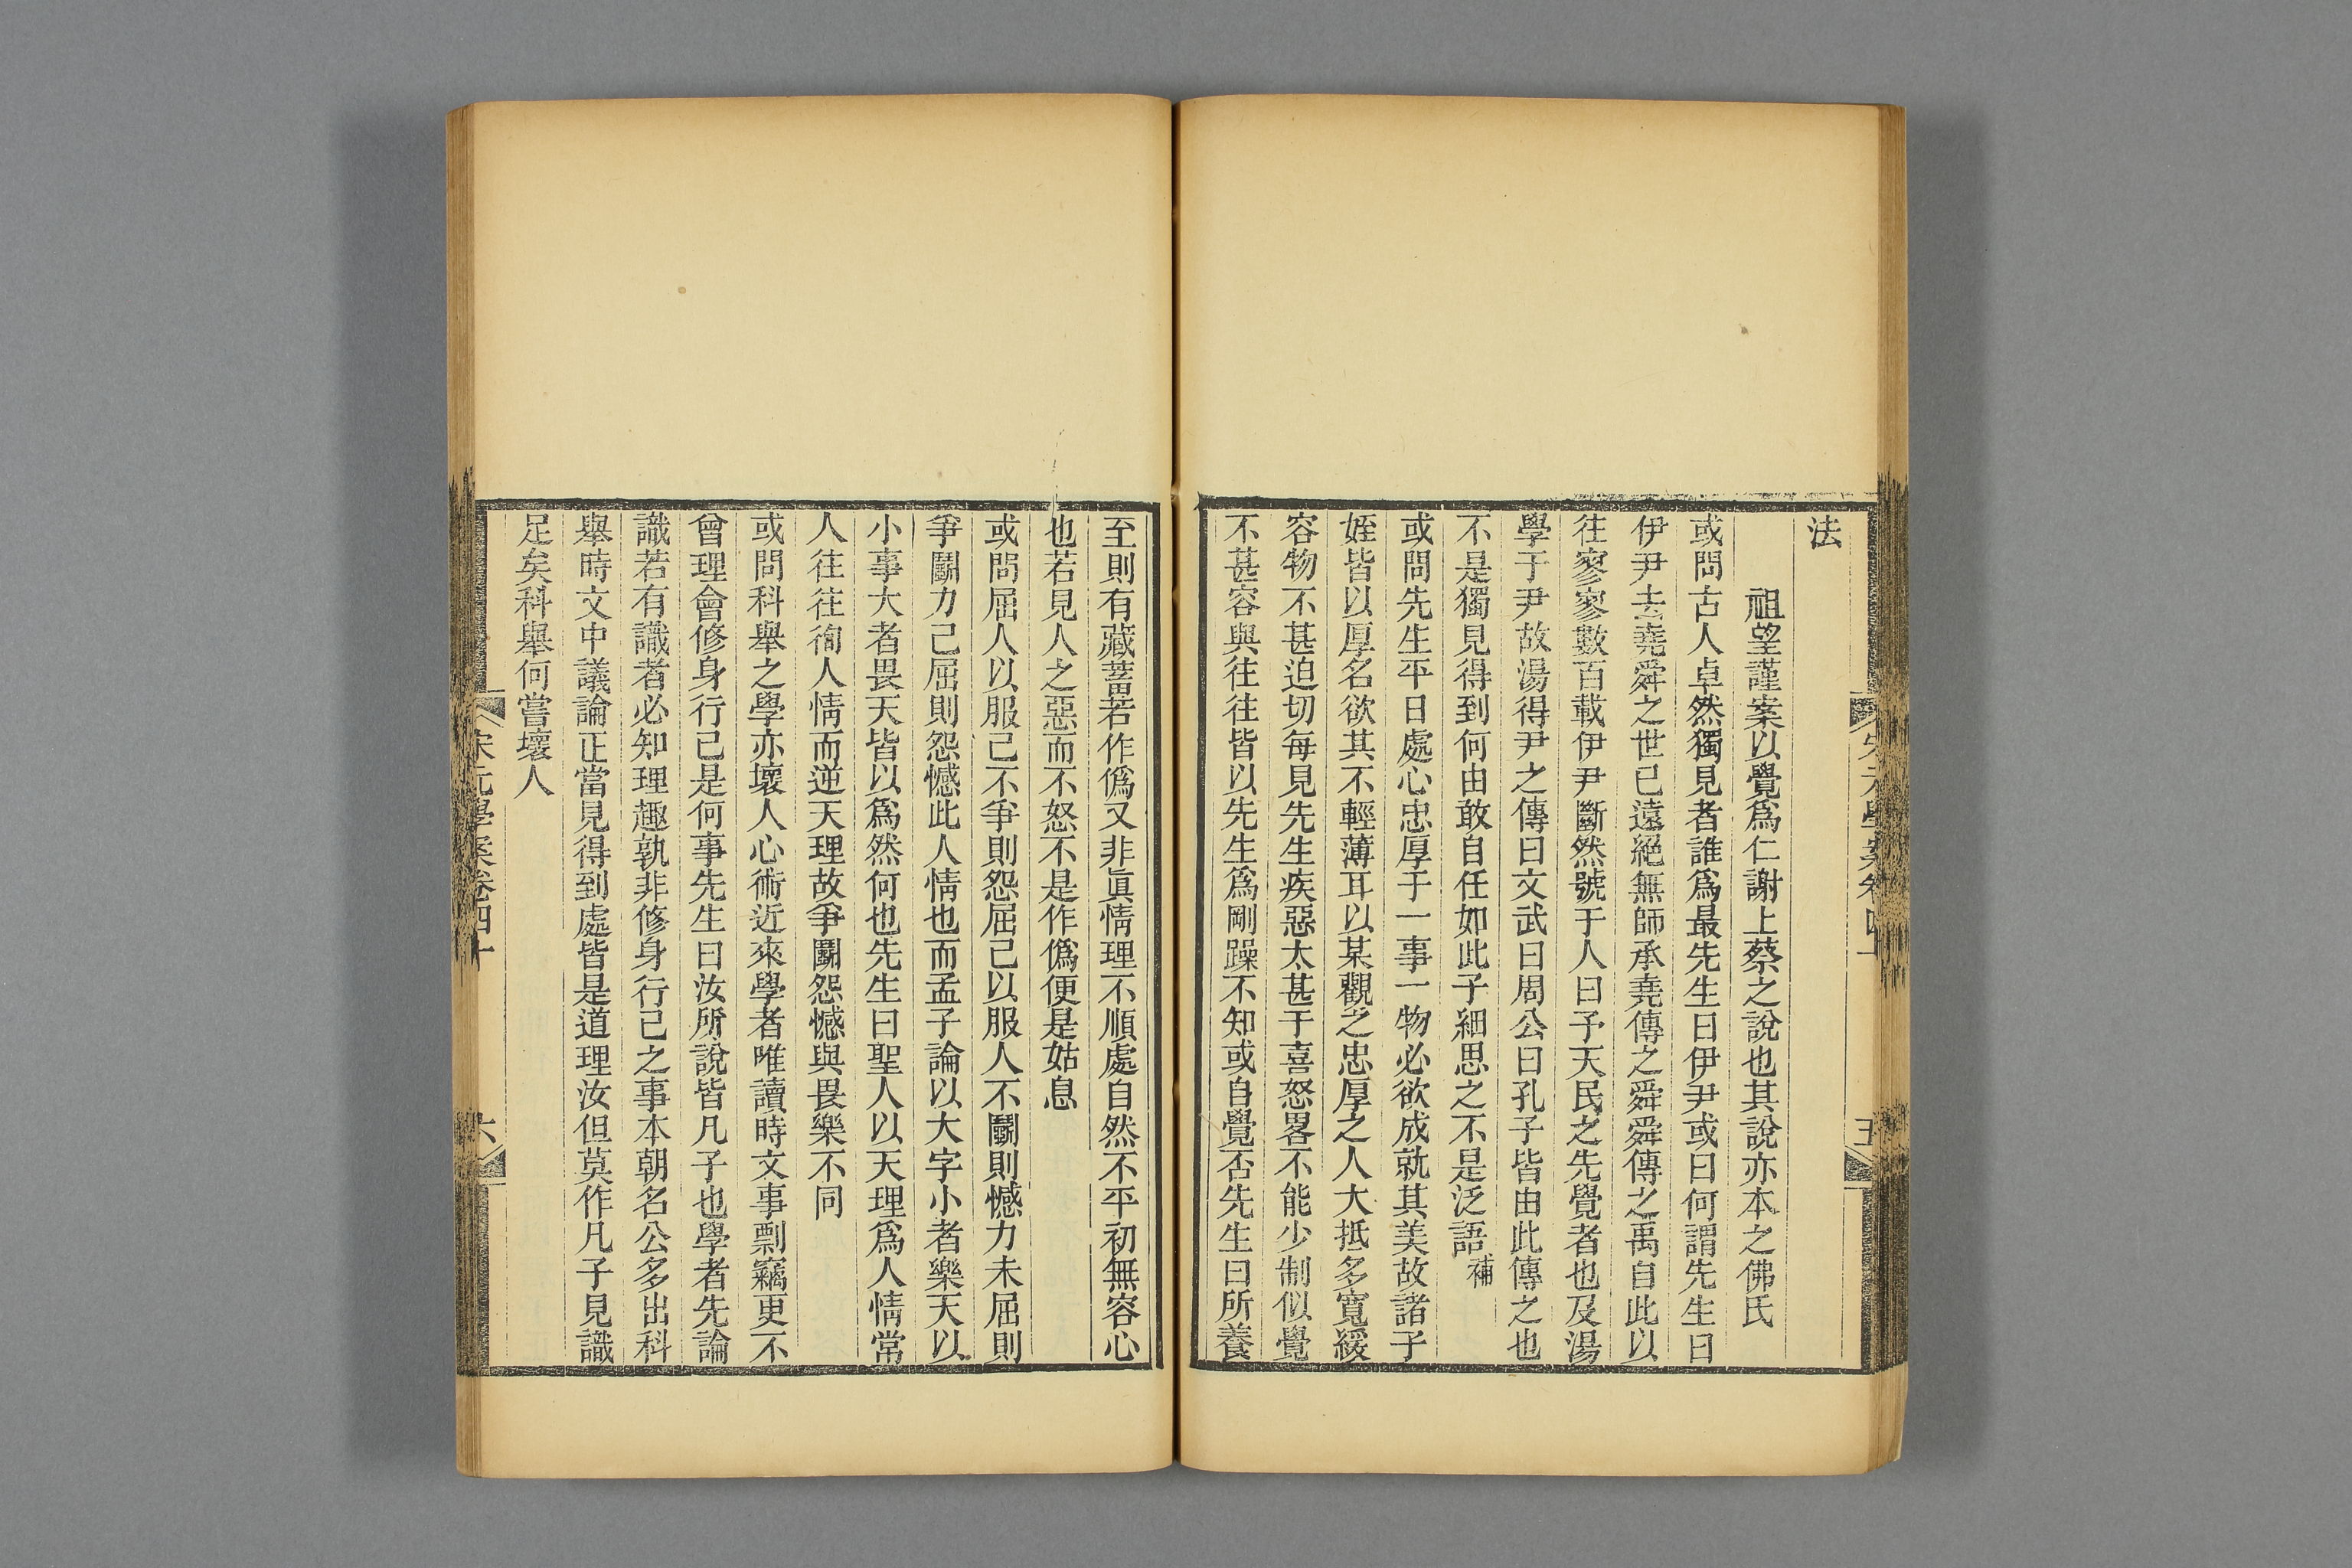 法
祖望謹案以覺爲仁謝上蔡之說也其說亦本之佛氏
或問古人卓然獨見者誰爲最先生曰伊尹或曰何謂先生曰
伊尹去堯舜之世已遠絕無師承堯傳之舜舜傳之禹自此以
往寥寥數百載伊尹斷然號于人曰予天民之先覺者也及湯
學于尹故湯得尹之傳曰文武曰周公曰孔子皆由此傳之也
不是獨見得到何由敢自任如此子細思之不是泛語補
或問先生平日處心忠厚于一事一物必欲成就其美故諸子
姪皆以厚名欲其不輕薄耳以某觀之忠厚之人大抵多寬緩
容物不甚迫切每見先生疾惡太甚于喜怒畧不能少制似覺
不甚容與往往皆以先生爲剛躁不知或自覺否先生曰所養
至則有藏蓄若作僞又非眞情理不順處自然不平初無容心
也若見人之惡而不怒不是作僞便是姑息
或問屈人以服己不爭則怨屈己以服人不鬭則憾力未屈則
爭鬭力已屈則怨憾此人情也而孟子論以大字小者樂天以
小事大者畏天皆以爲然何也先生曰聖人以天理爲人情常
人往往徇人情而逆天理故爭鬭怨憾與畏樂不同
或問科舉之學亦壞人心術近來學者唯讀時文事剽竊更不
曾理會修身行己是何事先生曰汝所說皆凡子也學者先論
識若有識者必知理趣孰非修身行己之事本朝名公多出科
舉時文中議論正當見得到處皆是道理汝但莫作凡子見識
足矣科舉何嘗壞人
宋元學案卷四十
六